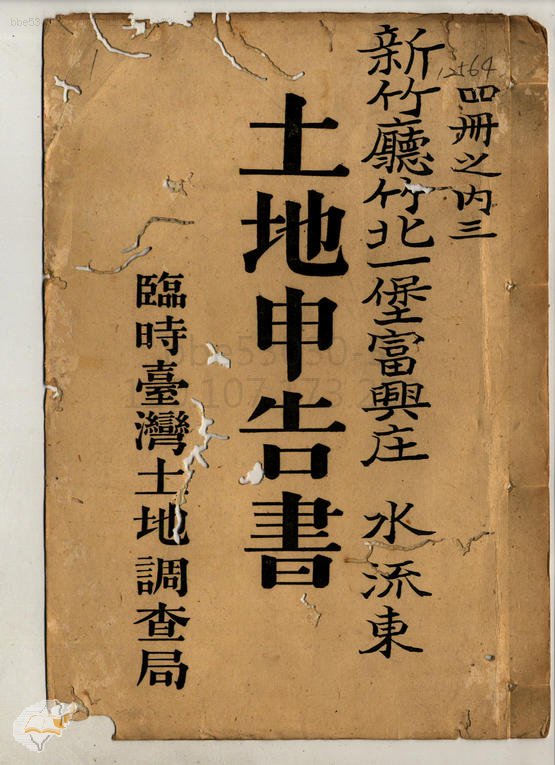 12564
四冊之内三
新竹廳竹北一堡富興庄 水流東
土地申告書
臨時臺灣土地調查局